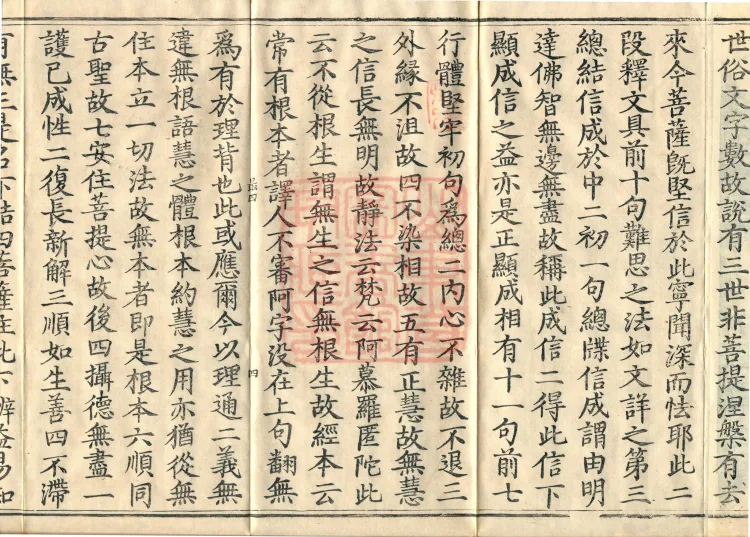 世俗文字數故說有三世非菩提涅槃有去
來今菩薩旣堅信於此寧聞深而怯耶此二
段釋文具前十句難思之法如文詳之第三
總結信成於中二初一句總牒信成謂由明
達佛智無邊無盡故稱此成信二得此信下
顯成信之益亦是正顯成相有十一句前七
行體堅牢初句爲總二内心不雜故不退三
外緣不沮故四不染相故五有正慧故無慧
之信長無明故靜法云梵云阿慕羅匿陀此
云不從根生謂無生之信無根生故經本云
常有根本者譯人不審阿字没在上句翻無
爲有於理背也此或應爾今以理通二義無
違無根語慧之體根本約慧之用亦猶從無
住本立一切法故無本者即是根本六順同
古聖故七安住菩提心故後四攝德無盡一
護已成性二復長新解三順如生善四不滯